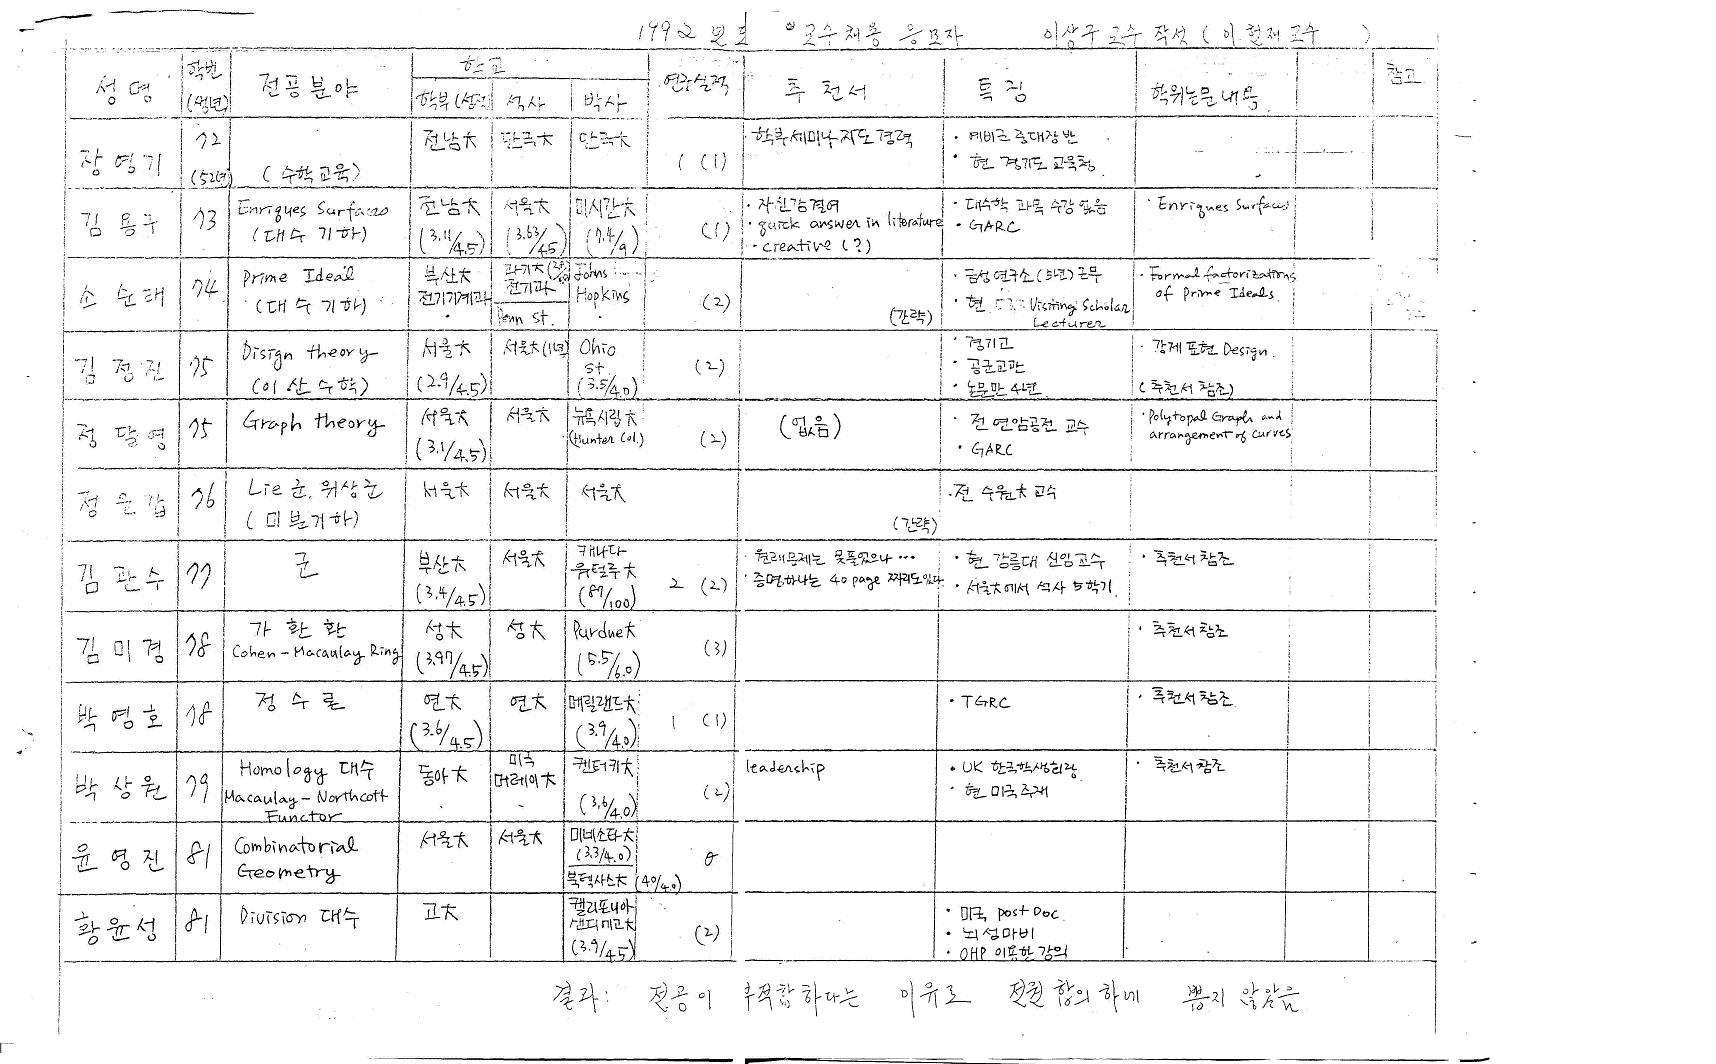 1992 교수채용 응모자 이상구 교수 작성 ( 이 현재 교수 )
성명 학번 (생년) 전공분야 학교 연구실적 추천서 특징 학위논문내용 참고
학부 (성적) 석사 박사
장영기 72 (52년) (수학교육) 전남大 단국大 단국大 1 (1) 학부세미나지도경력 · 예비군중대장반
· 현 경기도 교육청
김용구 73 Enriques Surfaces 전남大 서울大 미시간大 (1) · 자신감결여 · 대수학 과목 수강 없음 · Enriques Surfaces
(대수기하) (3.11/4.5) (3.63/4.5) (7.4/9) · quick answer in literature · GARC
· creative (?)
소순태 74 Prime Ideal 부산大 과기大 Johns Hopkins (2) · 금성연구소 (5년) 근무 · Formal factorizations
(대수기하) 전기기계과 전기과 (간략) · 현 Visiting Scholar of Prime Ideals
Penn St. Lecturer
김정진 75 Disign theory 서울大 서울大(1년) Ohio st (2) · 경기고 · 강제표현 Design.
(이산수학) (2.9/4.5) (3.5/4.0) · 공군교관
· 논문만 4년 (추천서 참조)
정달영 75 Graph theory 서울大 서울大 뉴욕시립大 (2) (없음) · 전 연암공전 교수 · Polytopal Graph and
(3.1/4.5) (Hunter Col.) · GARC arrangement of curves
정윤갑 76 Lie 군, 위상군 서울大 서울大 서울大 · 전 수원大 교수
(미분기하) (간략)
김관수 77 군 부산大 서울大 캐나다 워털루大 2 (2) · 원래문제는 못풀었으나 ··· · 현 강릉대 신임교수 · 추천서참조
(3.4/4.5) (87/100) · 증명하나는 40 page 짜리도있다. · 서울大에서 석사 5학기
김미경 78 가환환 성大 성大 Purdue大 (3) · 추천서참조
Cohen-Macaulay Ring (3.97/4.5) (5.5/6.0)
박영호 78 정수론 연大 연大 메릴랜드大 1 (1) · TGRC · 추천서참조
(3.6/4.5) (3.9/4.0)
박상원 79 Homology 대수 동아大 미국 머레이大 켄터키大 (2) leadership · UK 한국학생회장 · 추천서참조
Macaulay-Northcott (3.6/4.0) · 현 미국주재
Functor
윤영진 81 Combinatorial 서울大 서울大 미네소타大 0
Geometry (3.3/4.0)
북텍사스大 (4.0/4.0)
황윤성 81 Division 대수 고大 캘리포니아 샌디에고大 (2) · 미국 post Doc.
(3.9/4.5) · 뇌성마비
· OHP 이용한 강의
결과: 전공이 부적합하다는 이유로 전원 합의하에 뽑지 않았음